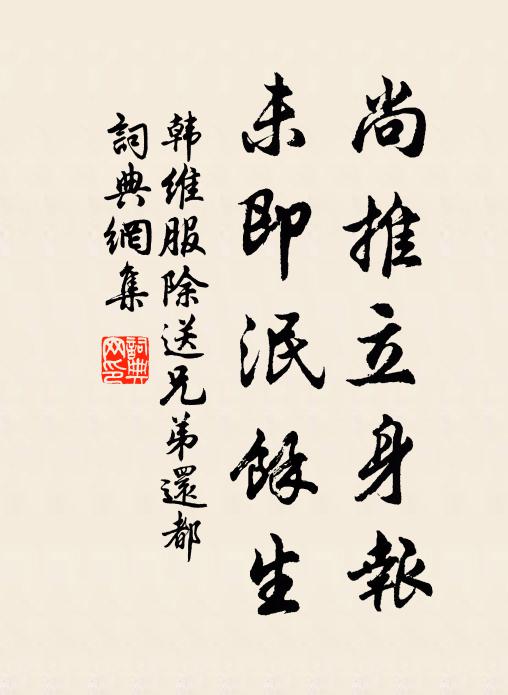 尚推立身報
未即泯餘生
韩維服除送兄弟還都
詞典網集
詞典網印